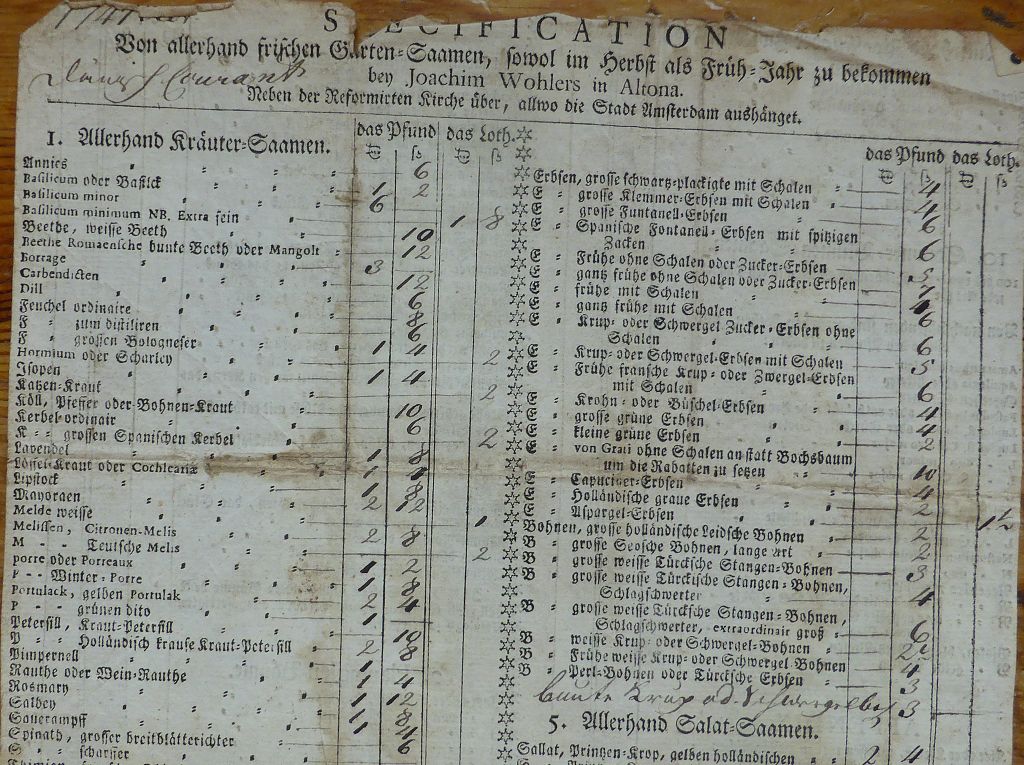 SPECIFICATION
Von allerhand frischen Garten-Saamen, sowol im Herbst als Früh-Jahr zu bekommen
Dänisch Courant
bey Joachim Wohlers in Altona.
Neben der Reformirten Kirche über, allwo die Stadt Amsterdam aushänget.
das Pfund das Loth.
1. Allerhand Kräuter-Saamen.
Annies 6
Basilicum oder Basilck 1 2
Basilicum minor 6
Basilicum minimum NB. Extra fein 1 8
Beethe, weisse Beeth 10
Beethe Romaensche bunte Beeth oder Mangolt 12
Borrage 3
Carbendicten 12
Dill 6
Feuchel ordinaire 8
F - zum distiliren 6
F - grossen Bologneser 1 4
Hormium oder Scharley 2
Isopen 1 4
Katzen-Kraut 2
Köll, Pfeffer oder Bohnen-Kraut 10
Kerbel ordinair 6
K - - grossen Spanischen Kerbel 2
Lavendel 1 8
Löffel-Kraut oder Cochleariæ 1
Lipstock 1 8
Mayoraen 2 12
Melde weisse
Melissen, Citronen-Melis 1
M - - Teutsche Melis 2 8
porre oder Porreaux 2
P - - Winter-Porre 1 2
Portulack, gelben Portulak 1 8
P - - grünen dito 2 4
Petersill, Kraut-Petersill 1
P - - Holländisch krause Kraut-Petersill 10
Pimpernell 2 8
Rauthe oder Wein-Rauthe 1
Rosmary 1 4
Salbey 1 12
Sauerampff 1 8
Spinath, grosser breitblätterichter 4
S - - scharffer 6
Thimian
das Pfund das Loth.
Erbsen, grosse schwartz-plackigte mit Schalen 4
E - grosse Klemmer-Erbsen mit Schalen 4
E - grosse Funtanell-Erbsen 6
E - Spanische Fontanell-Erbsen mit spitzigen
Zacken 6
E - Frühe ohne Schalen oder Zucker-Erbsen 5
E - gantz frühe ohne Schalen oder Zucker-Erbsen
E - frühe mit Schalen 4
E - gantz frühe mit Schalen 6
E - Krup- oder Schwergel Zucker-Erbsen ohne
Schalen 6
E - Krup- oder Schwergel-Erbsen mit Schalen 5
E - Frühe fransche Krup- oder Zwergel-Erbsen
mit Schalen 6
E - Krohn- oder Büschel-Erbsen 4
E - grosse grüne Erbsen 4
E - kleine grüne Erbsen 2
E - von Grati ohne Schalen anstatt Bochsbaum
um die Rabatten zu setzen 10
E - Capuciner-Erbsen 4
E - Holländische graue Erbsen 2
E - Aspargel-Erbsen 1 1/2
Bohnen, grosse holländische Leidsche Bohnen 2
B - grosse Seosche Bohnen, lange art 2
B - grosse weisse Türcksche Stangen-Bohnen 3
B - grosse weisse Türckische Stangen-Bohnen,
Schlagschwerter 4
B - grosse weisse Türcksche Stangen-Bohnen,
Schlagschwerter, extraordinair groß 6
B - weisse Krup- oder Schwergel-Bohnen
B - Frühe weisse Krup- oder Schwergel Bohnen 4
B - Perl-Bohnen oder Türcksche Erbsen 3
bunte Krup od. Schwergelbo 3
5. Allerhand Salat-Saamen.
Sallat, Printzen-Krop, gelben holländischen 2 4